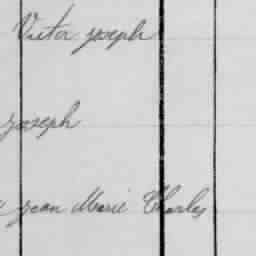 Victor joseph
joseph
jean Marie Charles